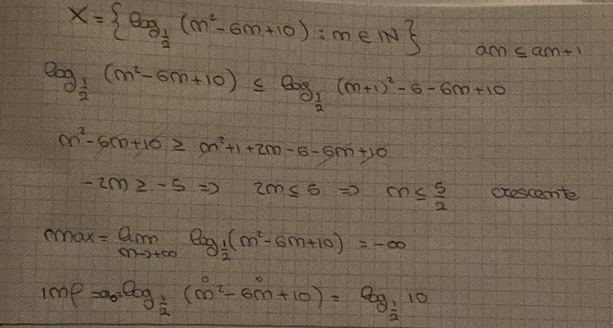 X = { log_{1/2} (m²-6m+10) : m ∈ IN } am ≤ am+1
log_{1/2} (m²-6m+10) ≤ log_{1/2} (m+1)²-6-6m+10
m²-6m+10 ≥ m²+1+2m-6-6m+10
-2m ≥ -5 => 2m ≤ 5 => m ≤ 5/2 crescente
max = lim_{m→+∞} log_{1/2} (m²-6m+10) = -∞
imf = a₀ = log_{1/2} (m²-6m+10) = log_{1/2} 10